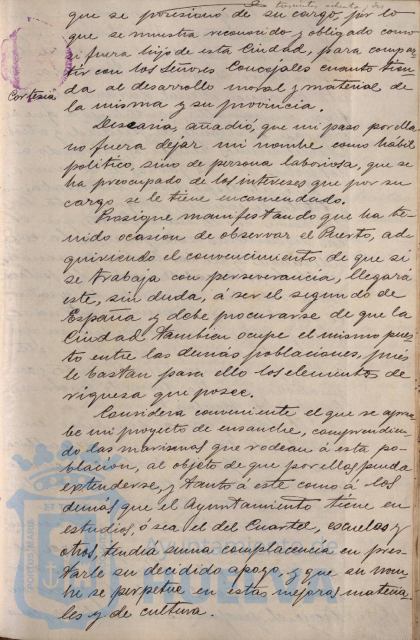 que se posesionó de su cargo, por lo
que se muestra reconocido y obligado como
si fuera hijo de esta Ciudad, para compar
tir con los Señores Concejales cuanto tien
Cortesía
da al desarrollo moral y material de
la misma y su provincia.
Desearia, añadió, que mi paso por ella
no fuera dejar mi nombre como habil
politico, sino de persona laboriosa, que se
ha preocupado de los intereses que por su
cargo se le tiene encomendado.
Prosigue manifestando que ha te-
nido ocasion de observar el Puerto, ad-
quiriendo el convencimiento de que si
se trabaja con perseverancia, llegará
este, sin duda, á ser el segundo de
España y debe procurarse de que la
Ciudad tambien ocupe el mismo pues
to entre las demás poblaciones, pues
le bastan para ello los elementos de
riqueza que posee.
Considera conveniente el que se aprue
be mi proyecto de ensanche, comprendien-
do las marismas que rodean á esta po-
blacion, al objeto de que por ellas pueda
extenderse, y tanto á este como á los
demás que el Ayuntamiento tiene en
estudios, ó sea el del Cuartel, escuelas y
otros, tendia suma complacencia en pres-
tarle su decidido apoyo, y que su nom-
bre se perpetue en estas mejoras materia-
les y de cultura.
PORTUS MARIS
Ayuntamiento de
HUELVA